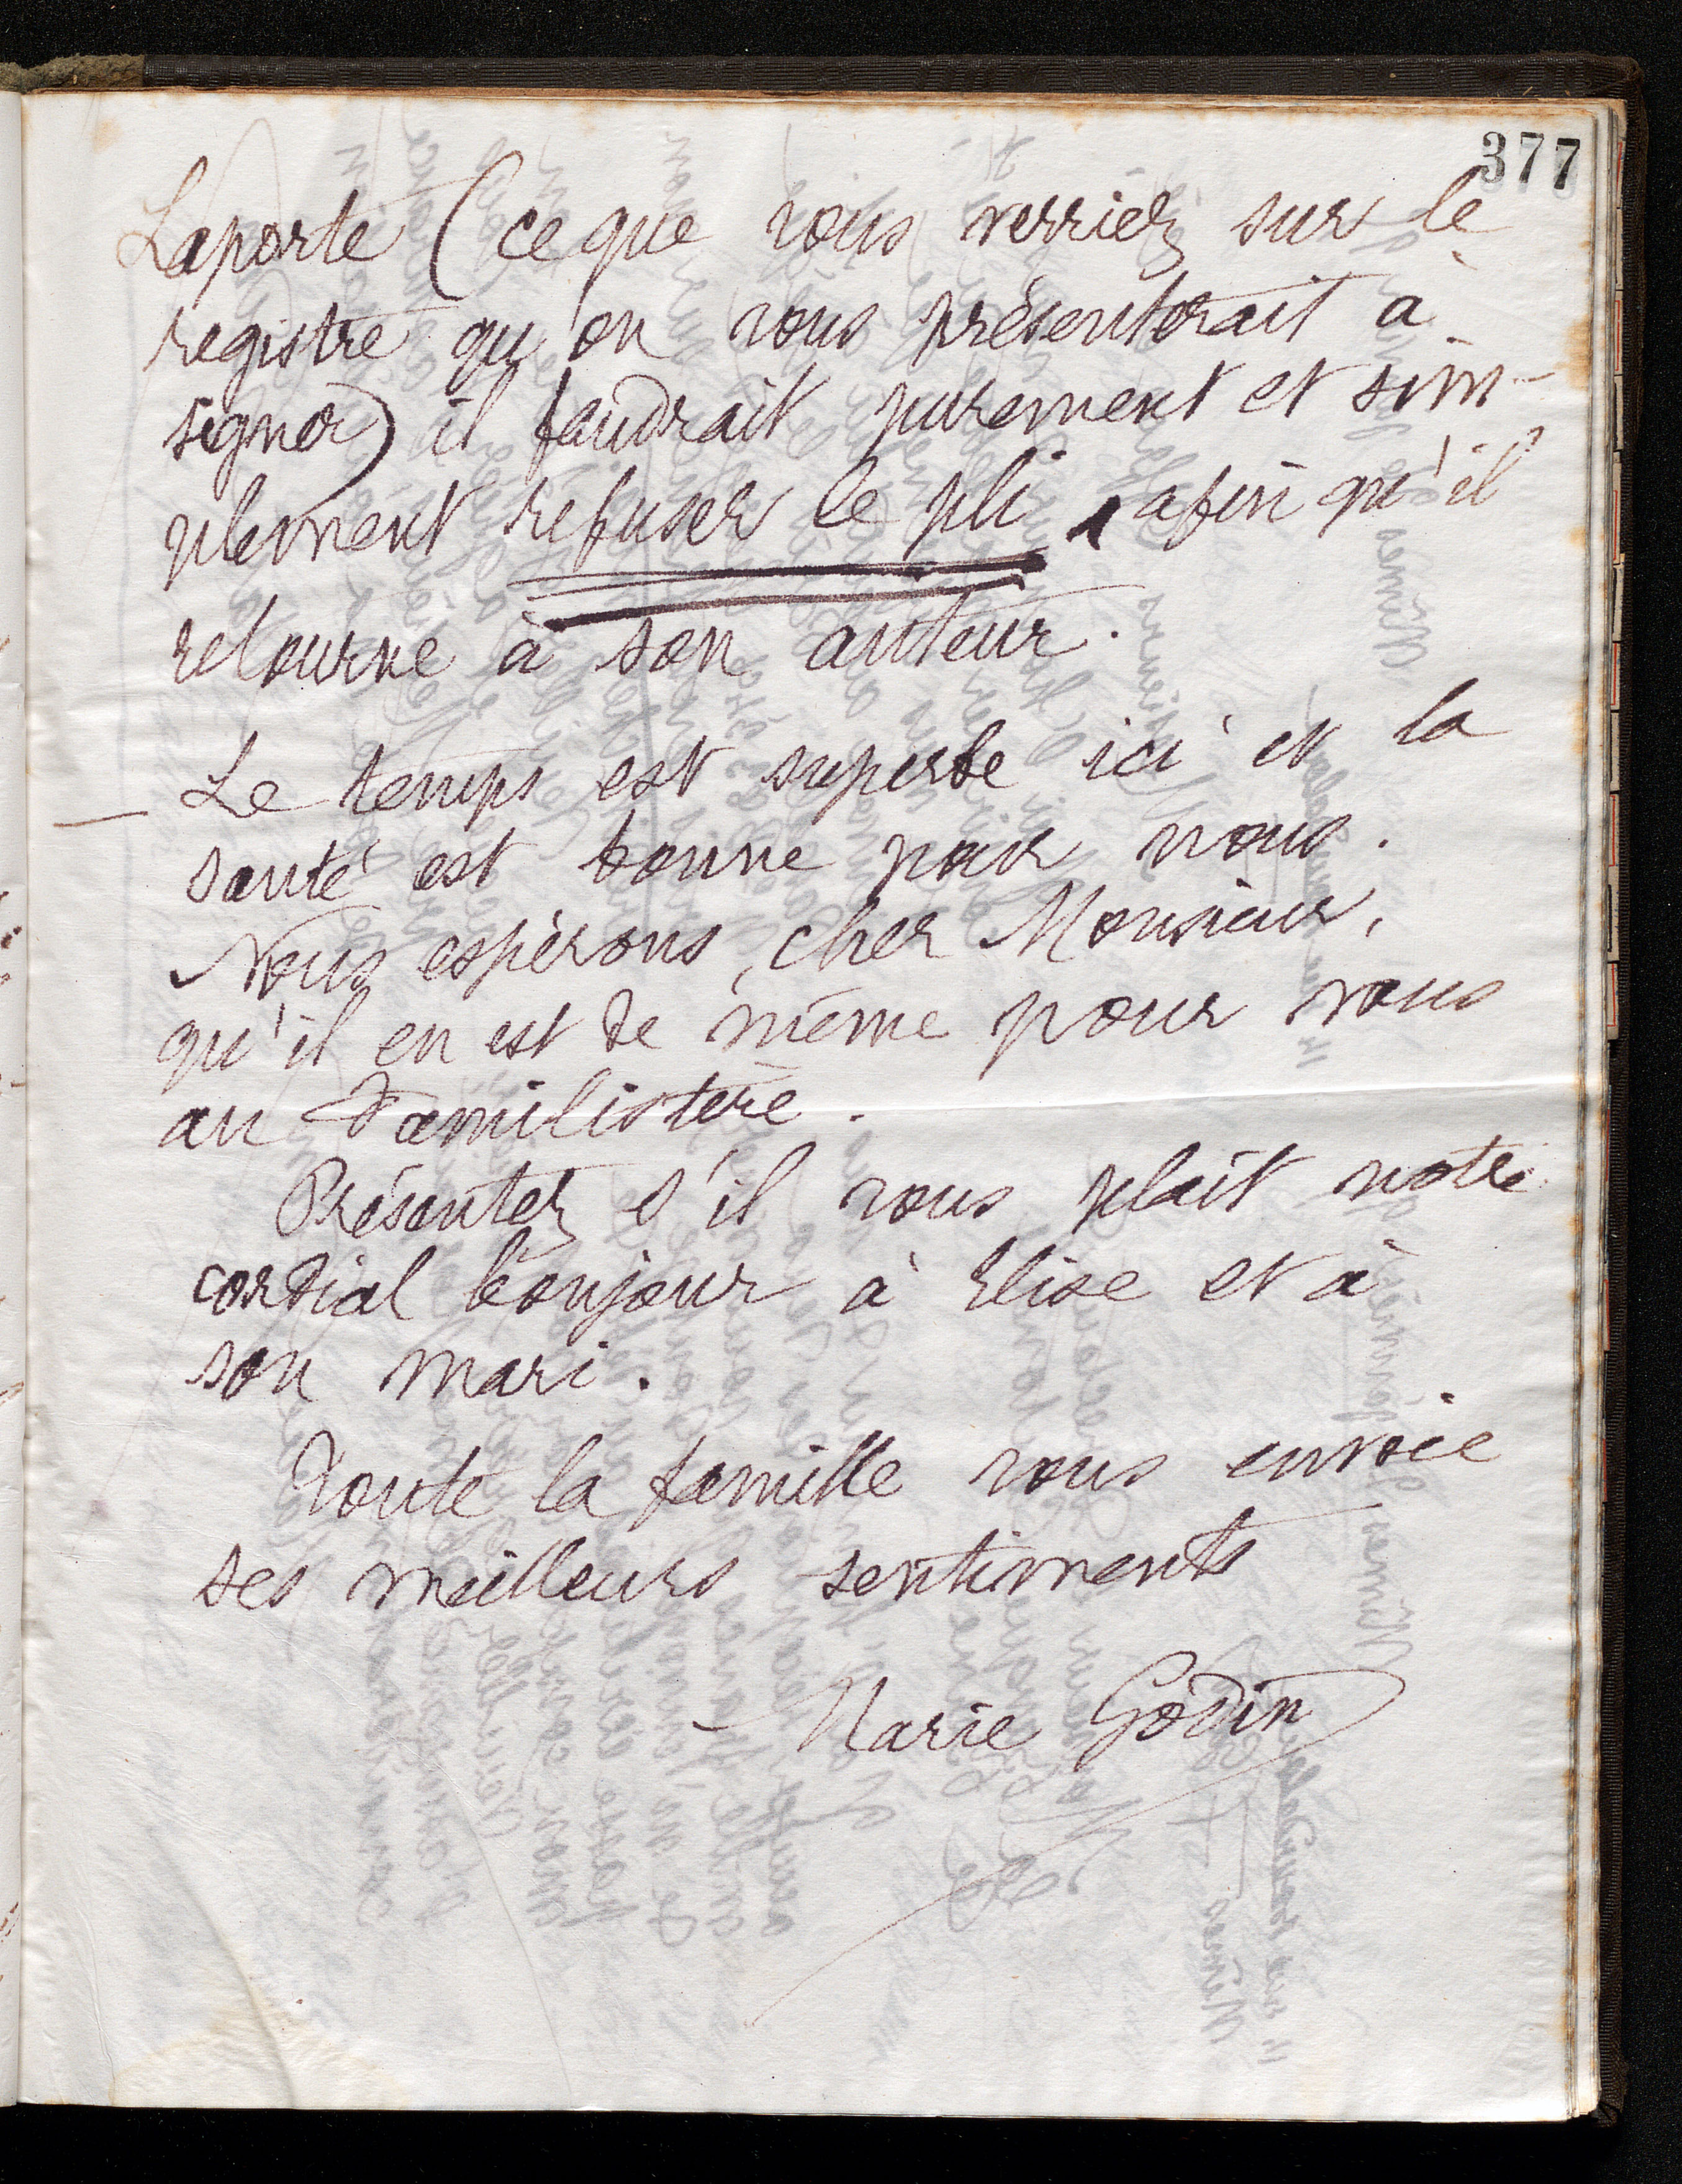 377
Laporte (ce que vous verriez sur le
registre qu'on vous présenterait à
signer) il faudrait purement et sim-
plement refuser le pli, afin qu'il
retourne à son auteur.
Le temps est superbe ici et la
santé est bonne pour nous.
Nous espérons, cher Monsieur,
qu'il en est de même pour vous
au Familistère.
Présentez s'il vous plaît notre
cordial bonjour à Elise et à
son mari.
Toute la famille vous envoie
ses meilleurs sentiments
Marie Godin